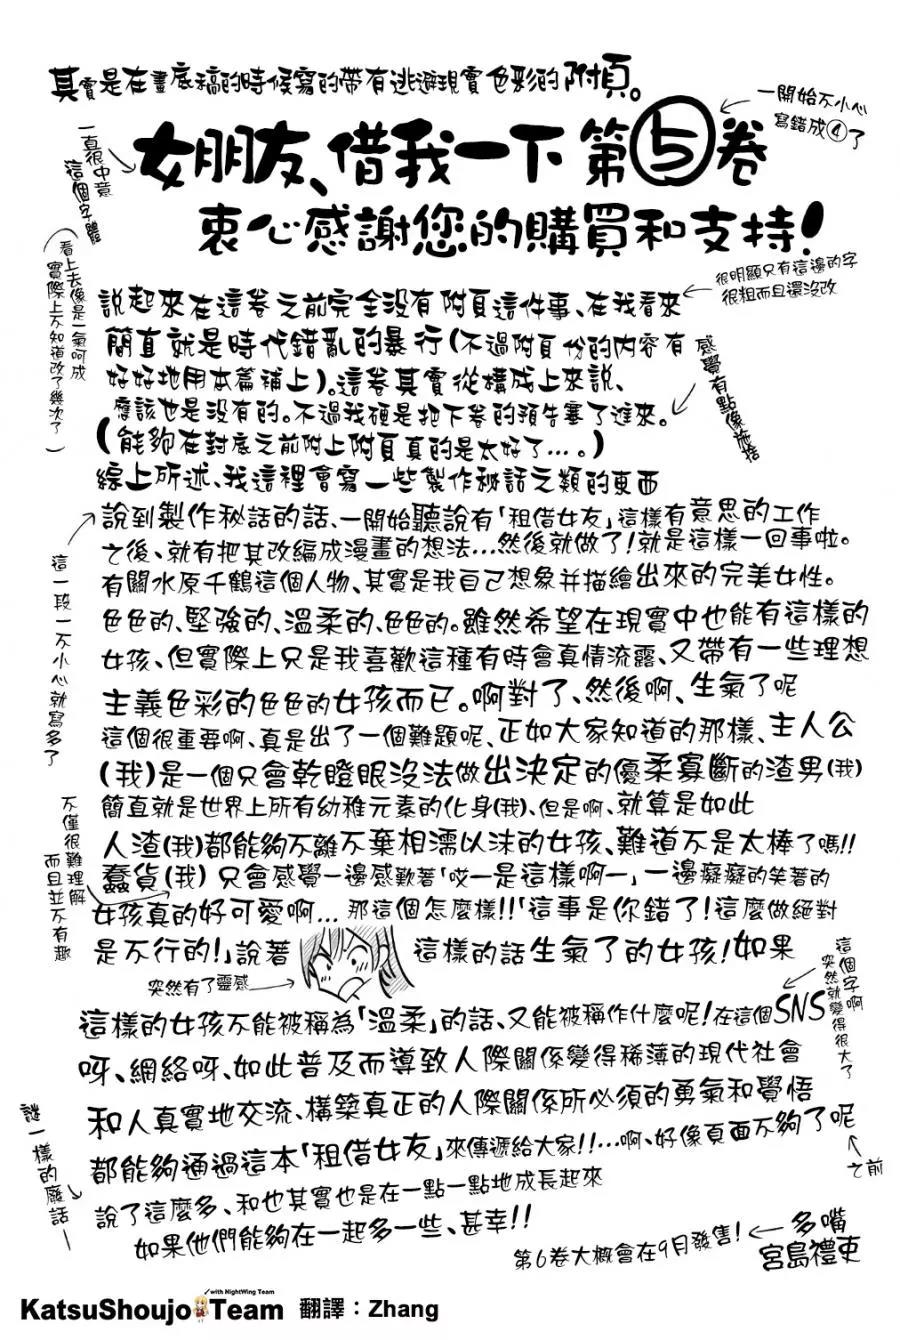 其實是在畫底稿的時候寫的帶有逃避現實色彩的附頁。
一開始不小心
寫錯成④了
一直很中意
這個字體
女朋友、借我一下 第⑤卷
衷心感謝您的購買和支持!
很明顯只有這邊的字
很粗而且還沒改
(看上去像是一氣呵成
實際上不知道改了幾次了)
說起來在這卷之前完全没有附頁這件事、在我看來
簡直就是時代錯亂的暴行(不過附頁份的内容有
好好地用本篇補上)。這卷其實從構成上來說、
應該也是没有的。不過我硬是把下卷的預告塞了進來。
感覺有點像施捨
(能夠在封底之前附上附頁真的是太好了…。)
綜上所述、我這裡會寫一些製作秘話之類的東西
說到製作秘話的話、一開始聽說有「租借女友」這樣有意思的工作
之後、就有把其改編成漫畫的想法…然後就做了!就是這樣一回事啦。
有關水原千鶴這個人物、其實是我自己想象并描繪出來的完美女性。
這一段一不小心就寫多了
色色的、堅強的、溫柔的、色色的。雖然希望在現實中也能有這樣的
女孩、但實際上只是我喜歡這種有時會真情流露、又帶有一些理想
主義色彩的色色的女孩而已。啊對了、然後啊、生氣了呢
這個很重要啊、真是出了一個難題呢、正如大家知道的那樣、主人公
(我)是一個只會乾瞪眼沒法做出決定的優柔寡斷的渣男(我)
簡直就是世界上所有幼稚元素的化身(我)、但是啊、就算是如此
人渣(我)都能夠不離不棄相濡以沫的女孩、難道不是太棒了嗎!!
不僅很難理解
而且並不有趣
蠢貨(我)只會感覺一邊感歎著「哎一是這樣啊一」一邊癡癡的笑著的
女孩真的好可愛啊… 那這個怎麼樣!!「這事是你錯了!這麼做絕對
是不行的!」說著
這樣的話生氣了的女孩!如果
突然有了靈感
這個字啊
突然就變得很大了
這樣的女孩不能被稱為「溫柔」的話、又能被稱作什麼呢!在這個SNS
呀、網絡呀、如此普及而導致人際關係變得稀薄的現代社會
和人真實地交流、構築真正的人際關係所必須的勇氣和覺悟
都能夠通過這本「租借女友」來傳遞給大家!!…啊、好像頁面不夠了呢
之前
謎一樣的廢話一
說了這麼多、和也其實也是在一點一點地成長起來
如果他們能夠在一起多一些、甚幸!!
第6卷大概會在9月發售!
多嘴
宮島禮吏
with NightWing Team
KatsuShoujo Team 翻譯：Zhang